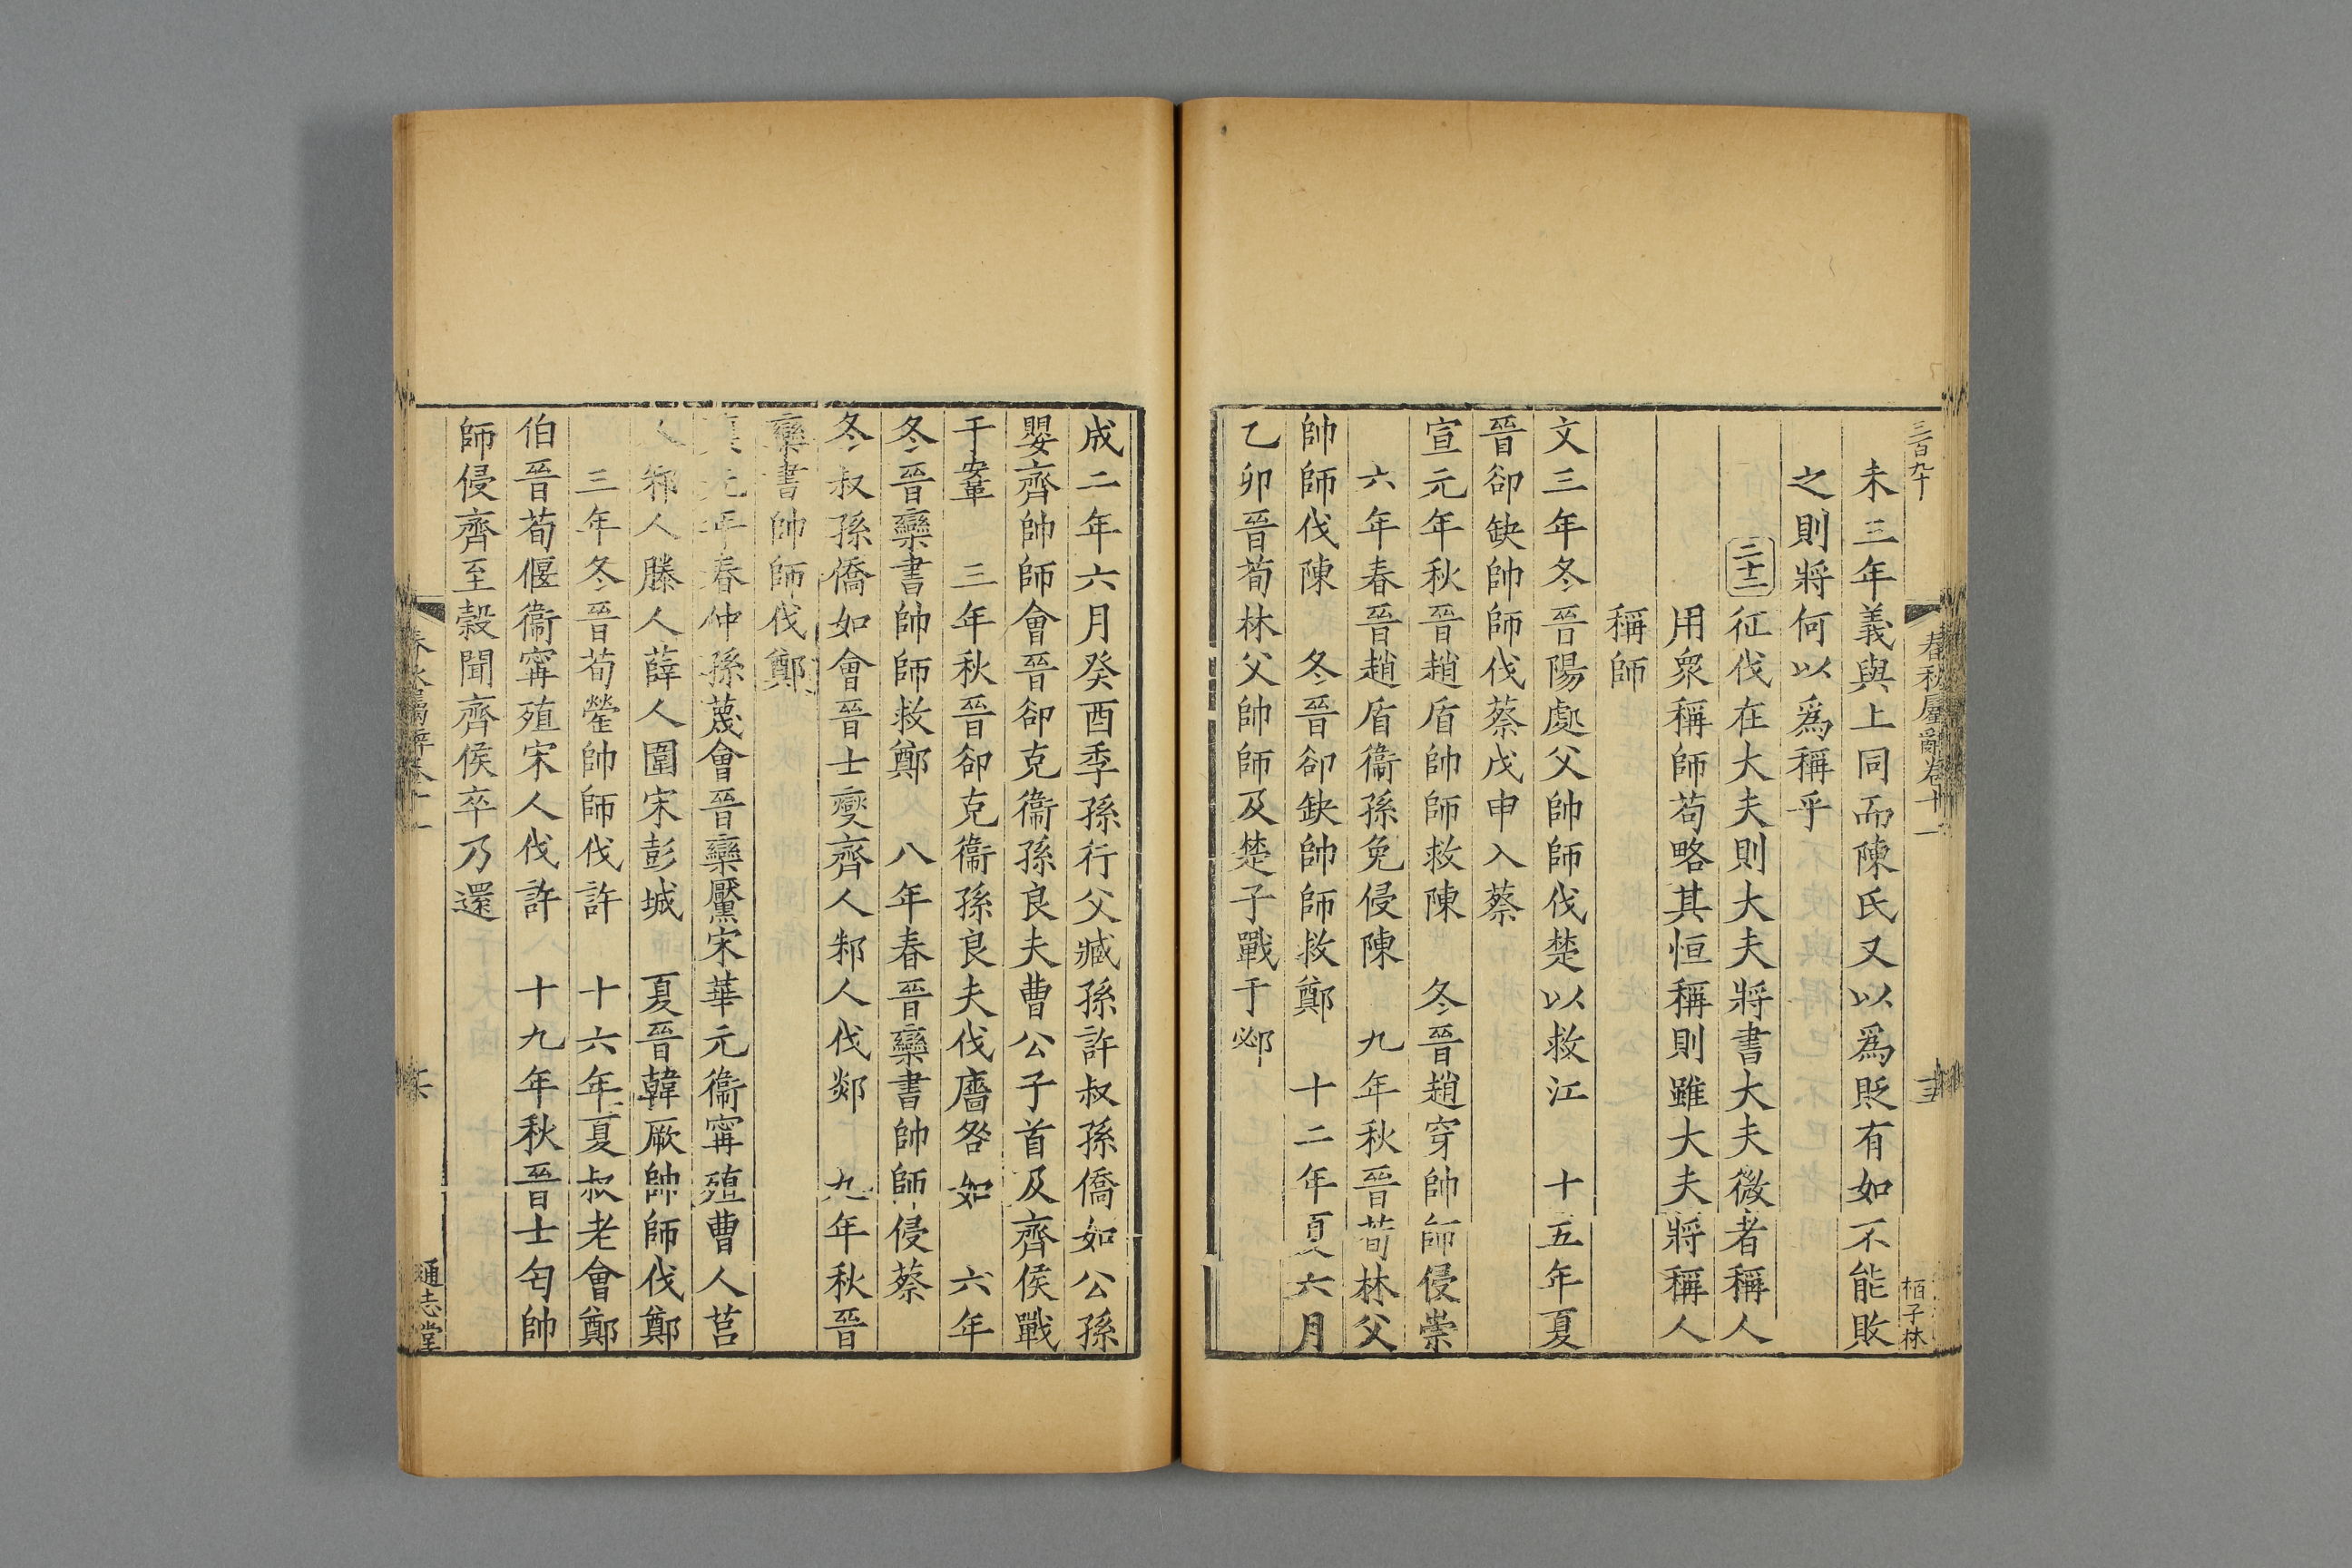 三百九十
春秋屬辭卷十一
十五
栢子林
未三年義與上同而陳氏又以爲貶有如不能敗
之則將何以爲稱乎
二十二 征伐在大夫則大夫將書大夫微者稱人
用衆稱師苟略其恒稱則雖大夫將稱人
稱師
文三年冬晉陽處父帥師伐楚以救江 十五年夏
晉卻缺帥師伐蔡戊申入蔡
宣元年秋晉趙盾帥師救陳 冬晉趙穿帥師侵崇
六年春晉趙盾衞孫免侵陳 九年秋晉荀林父
帥師伐陳 冬晉卻缺帥師救鄭 十二年夏六月
乙卯晉荀林父帥師及楚子戰于邲
成二年六月癸酉季孫行父臧孫許叔孫僑如公孫
嬰齊帥師會晉卻克衞孫良夫曹公子首及齊侯戰
于鞌 三年秋晉卻克衞孫良夫伐廧咎如 六年
冬晉欒書帥師救鄭 八年春晉欒書帥師侵蔡
冬叔孫僑如會晉士燮齊人邾人伐郯 九年秋晉
欒書帥師伐鄭
襄元年春仲孫蔑會晉欒黶宋華元衞甯殖曹人莒
人邾人滕人薛人圍宋彭城 夏晉韓厥帥師伐鄭
三年冬晉荀罃帥師伐許 十六年夏叔老會鄭
伯晉荀偃衞甯殖宋人伐許 十九年秋晉士匄帥
師侵齊至穀聞齊侯卒乃還
春秋屬辭卷十一
通志堂